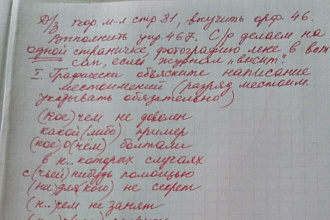 Д/з теор. м-л стр 81, внучить орф. 46.
Выполнить упр. 467. С/р делаем на
одной страничке, фотографию мне в вот
сап, если "журнал "висит".
I Графически объясните написание
местоимений (разряд местоим.
указывать обязательно)
(кое)чем не доволен
какой(либо) пример
(кое)о(чём) болтали
в н..которых случаях
с(чьей)нибудь помощью
(ни)для(кого) не секрет
(н..)чем не занят